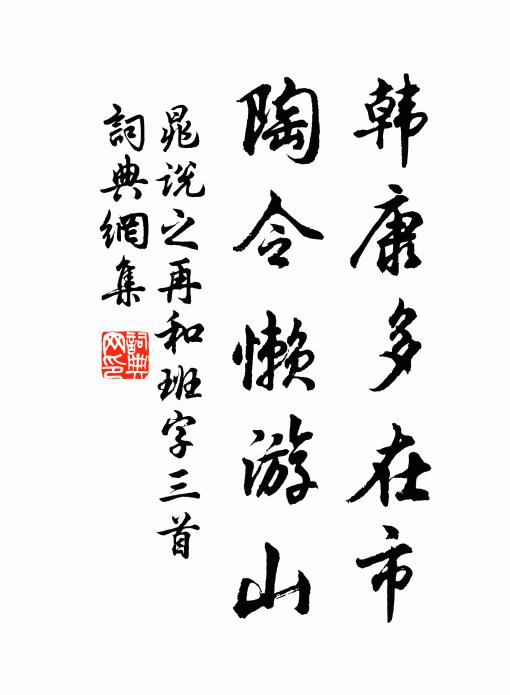 韩康多在市
陶令懒游山
晁说之再和班字三首
詞典網集
詞典网印